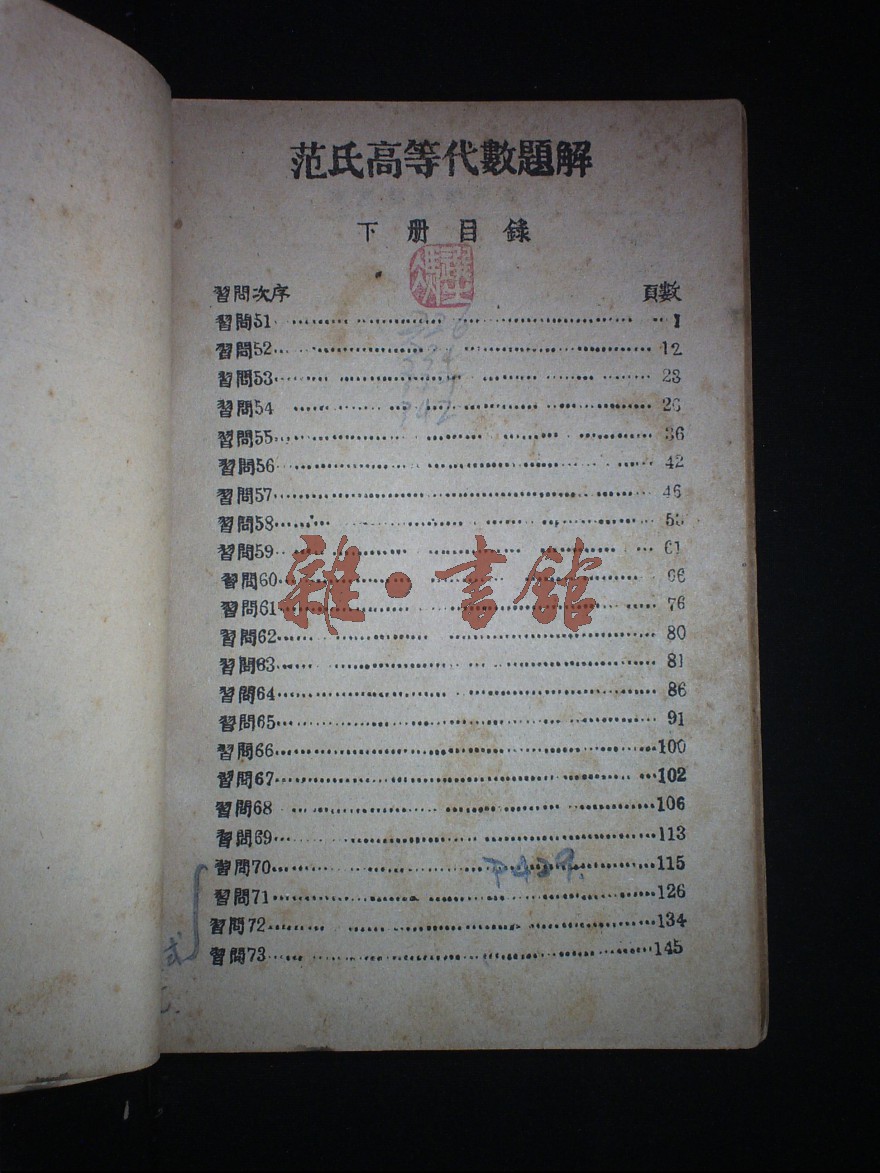 范氏高等代數題解
下册目錄
習問次序 頁數
習問51 1
習問52 12
習問53 23
習問54 26
習問55 36
習問56 42
習問57 46
習問58
習問59 61
習問60 66
習問61 76
習問62 80
習問63 81
習問64 86
習問65 91
習問66 100
習問67 102
習問68 106
習問69 113
習問70 115
習問71 126
習問72 134
習問73 145
雜·書館